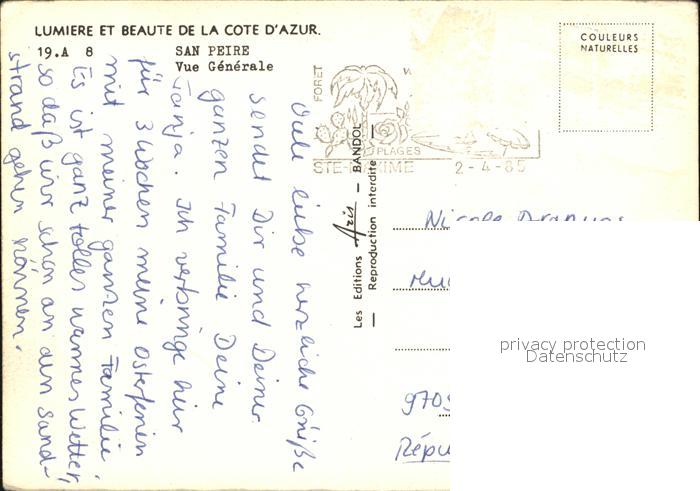 LUMIERE ET BEAUTE DE LA COTE D'AZUR.
19.A 8 SAN PEIRE
Vue Générale
COULEURS
NATURELLES
FORET
PLAGES
STE-MAXIME 2-4-85
Les Editions Azis — BANDOL
— Reproduction interdite —
Viele liebe herzliche Grüße
sendet Dir und Deiner
ganzen Familie Deine
Tanja. Ich verbringe hier
für 3 Wochen meine Osterferien
mit meiner ganzen Familie.
Es ist ganz tolles warmes Wetter,
so daß wir schon an den Sand-
strand gehen können.
Nicole
970
Répu
privacy protection
Datenschutz